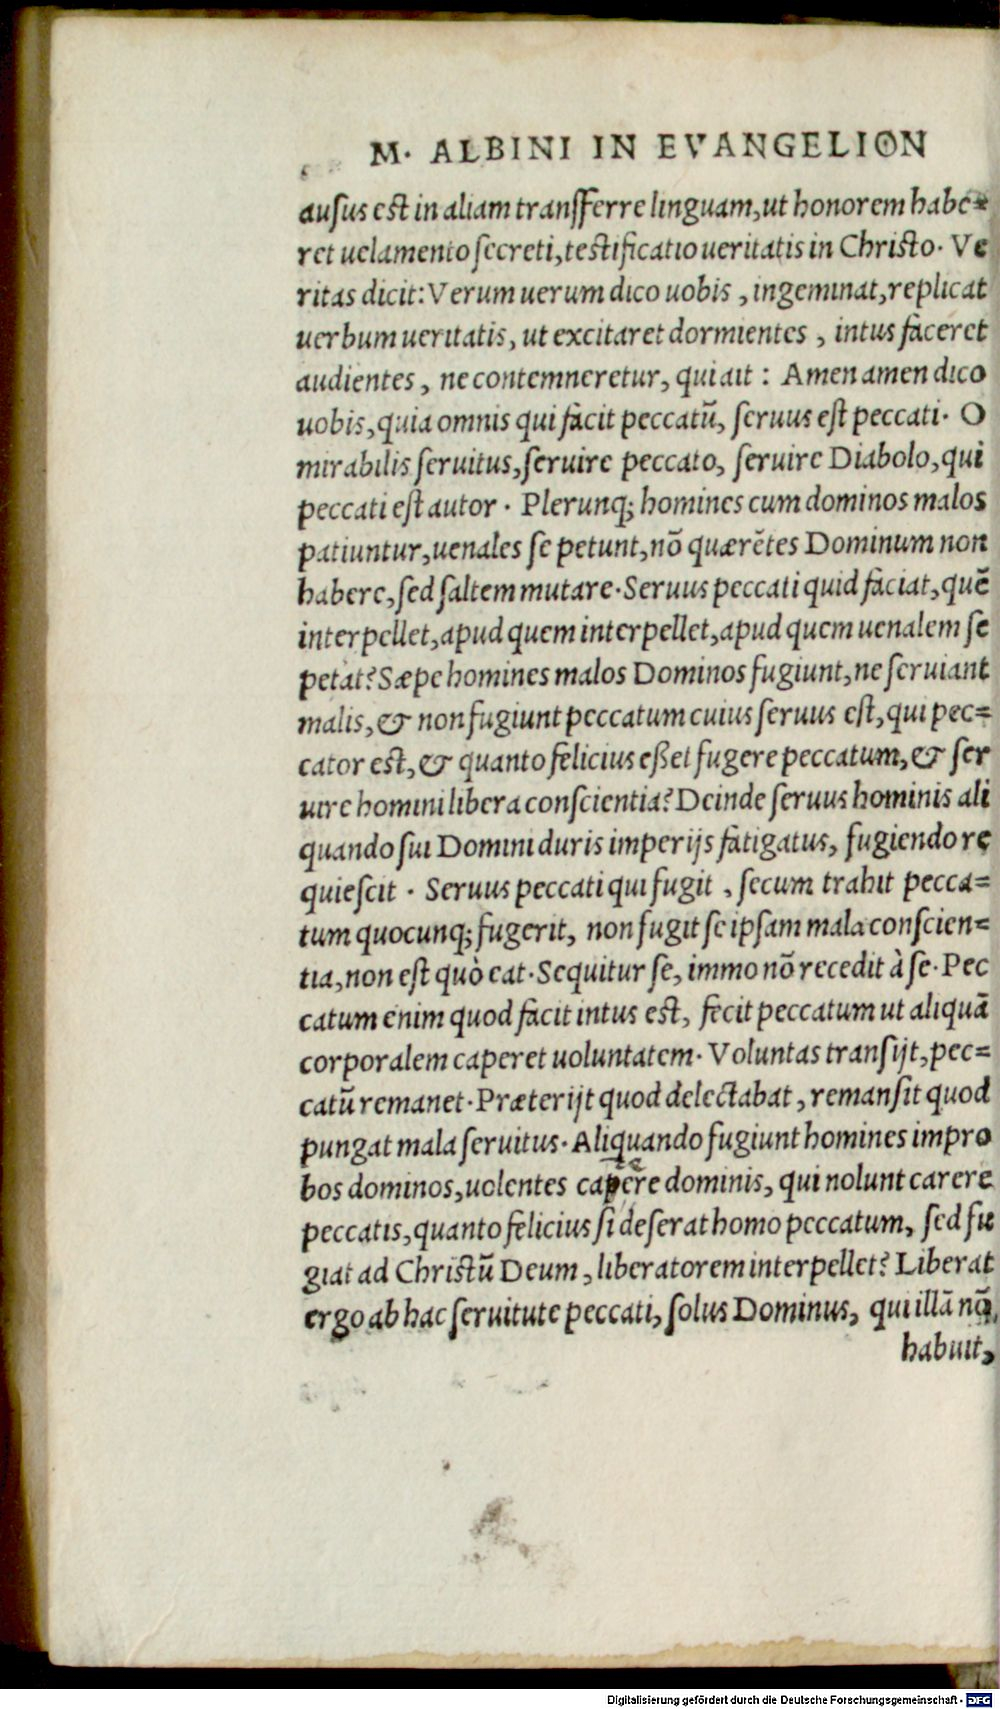 M. ALBINI IN EVANGELION
ausus est in aliam transferre linguam, ut honorem habe=
ret uelamento secreti, testificatio ueritatis in Christo. Ve
ritas dicit: Verum uerum dico uobis, ingeminat, replicat
uerbum ueritatis, ut excitaret dormientes, intus faceret
audientes, ne contemneretur, qui ait: Amen amen dico
uobis, quia omnis qui facit peccatũ, seruus est peccati. O
mirabilis seruitus, seruire peccato, seruire Diabolo, qui
peccati est autor. Plerunq; homines cum dominos malos
patiuntur, uenales se petunt, nõ quærẽtes Dominum non
habere, sed saltem mutare. Seruus peccati quid faciat, quẽ
interpellet, apud quem interpellet, apud quem uenalem se
petat? Sæpe homines malos Dominos fugiunt, ne seruiant
malis, & non fugiunt peccatum cuius seruus est, qui pec=
cator est, & quanto felicius eßet fugere peccatum, & ser
uire homini libera conscientia? Deinde seruus hominis ali
quando sui Domini duris imperijs fatigatus, fugiendo re
quiescit. Seruus peccati qui fugit, secum trahit pecca=
tum quocunq; fugerit, non fugit se ipsam mala conscien=
tia, non est quò eat. Sequitur se, immo nõ recedit à se. Pec
catum enim quod facit intus est, fecit peccatum ut aliquã
corporalem caperet uoluntatem. Voluntas transijt, pec=
catũ remanet. Præterijt quod delectabat, remansit quod
pungat mala seruitus. Aliquando fugiunt homines impro
bos dominos, uolentes dominis, qui nolunt carere
peccatis, quanto felicius si deserat homo peccatum, sed fu
giat ad Christũ Deum, liberatorem interpellet? Liberat
ergo ab hac seruitute peccati, solus Dominus, qui illã nõ
habuit,
Digitalisierung gefördert durch die Deutsche Forschungsgemeinschaft - DFG